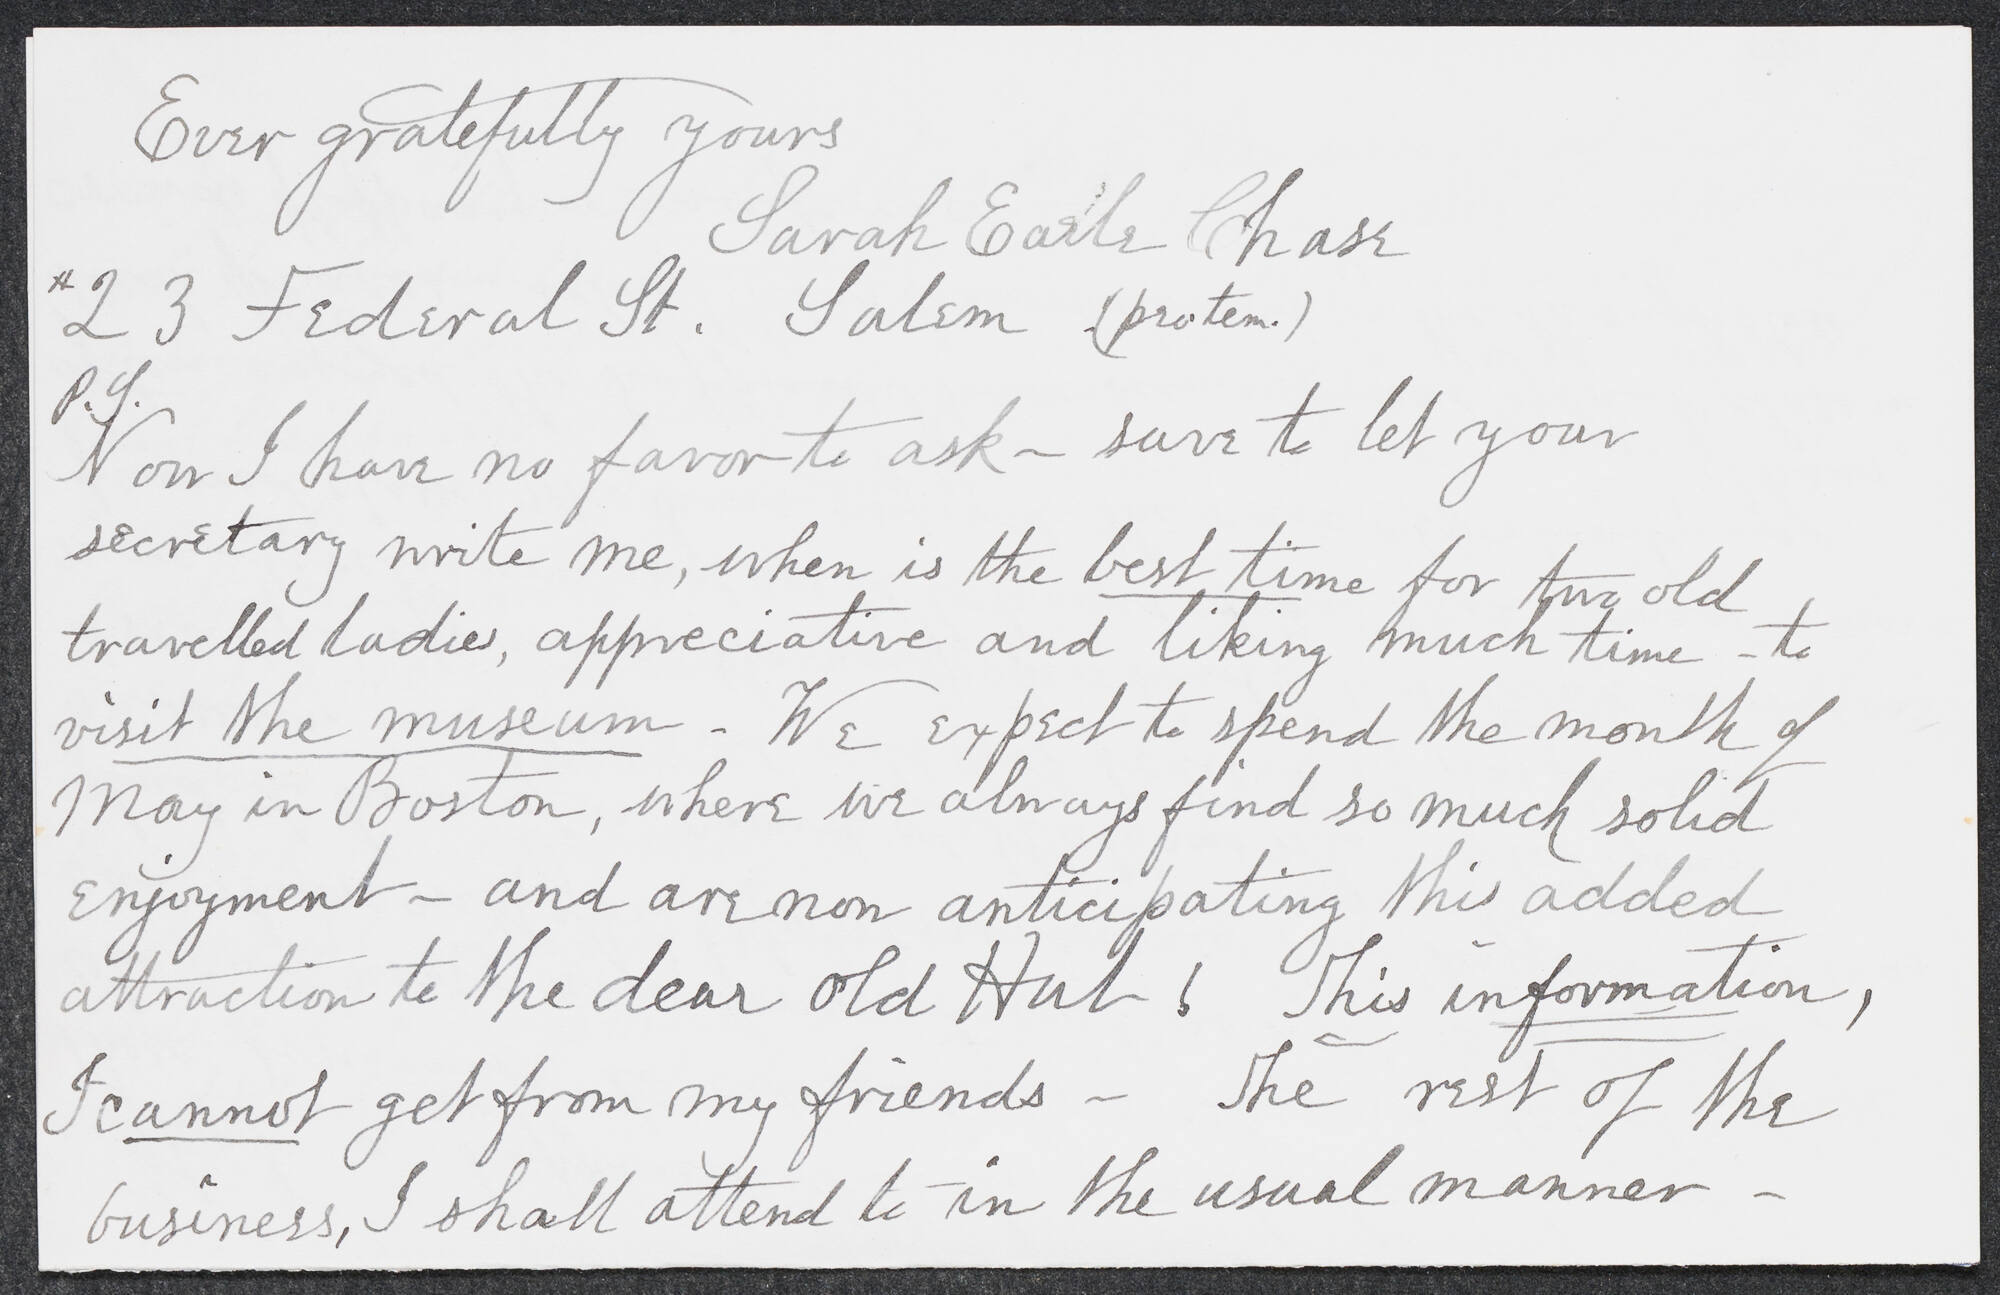 Ever gratefully yours
Sarah Earle Chase
#23 Federal St. Salem (pro tem.)
P.S.
Now I have no favor to ask – save to let your
secretary write me, when is the best time for two old
travelled ladies, appreciative and liking much time – to
visit the museum – We expect to spend the month of
May in Boston, where we always find so much solid
enjoyment – and are now anticipating this added
attraction to the dear old Hub! This information,
I cannot get from my friends – The rest of the
business, I shall attend to in the usual manner –